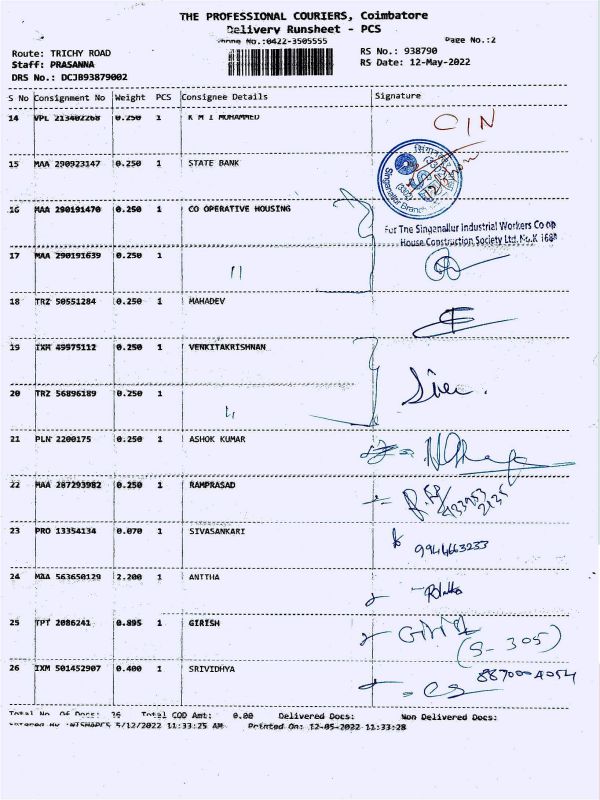 THE PROFESSIONAL COURIERS, Coimbatore
Delivery Runsheet - PCS
Phone No.:0422-3505555
Page No.:2
Route: TRICHY ROAD
RS No.: 938790
Staff: PRASANNA
RS Date: 12-May-2022
DRS No.: DCJB93879002
S No Consignment No Weight PCS Consignee Details Signature
14 VPL 213402268 0.250 1 K M I MOHAMMED
CIN
15 MAA 290923147 0.250 1 STATE BANK
Singanallur Branch
16 MAA 290191470 0.250 1 CO OPERATIVE HOUSING
For The Singanallur Industrial Workers Co op
House Construction Society Ltd. No.K 1688
17 MAA 290191639 0.250 1
18 TRZ 50551284 0.250 1 MAHADEV
19 IXM 49975112 0.250 1 VENKITAKRISHNAN
20 TRZ 56896189 0.250 1
21 PLN 2200175 0.250 1 ASHOK KUMAR
22 MAA 287293982 0.250 1 RAMPRASAD
23 PRO 13354134 0.070 1 SIVASANKARI
9944663233
24 MAA 563650129 2.200 1 ANITHA
25 TPT 2086241 0.895 1 GIRISH
(S-305)
26 IXM 501452907 0.400 1 SRIVIDHYA
8870004054
Total No. Of Docs: 26 Total COD Amt: 0.00 Delivered Docs: Non Delivered Docs:
5/12/2022 11:33:25 AM Printed On: 12-05-2022 11:33:28